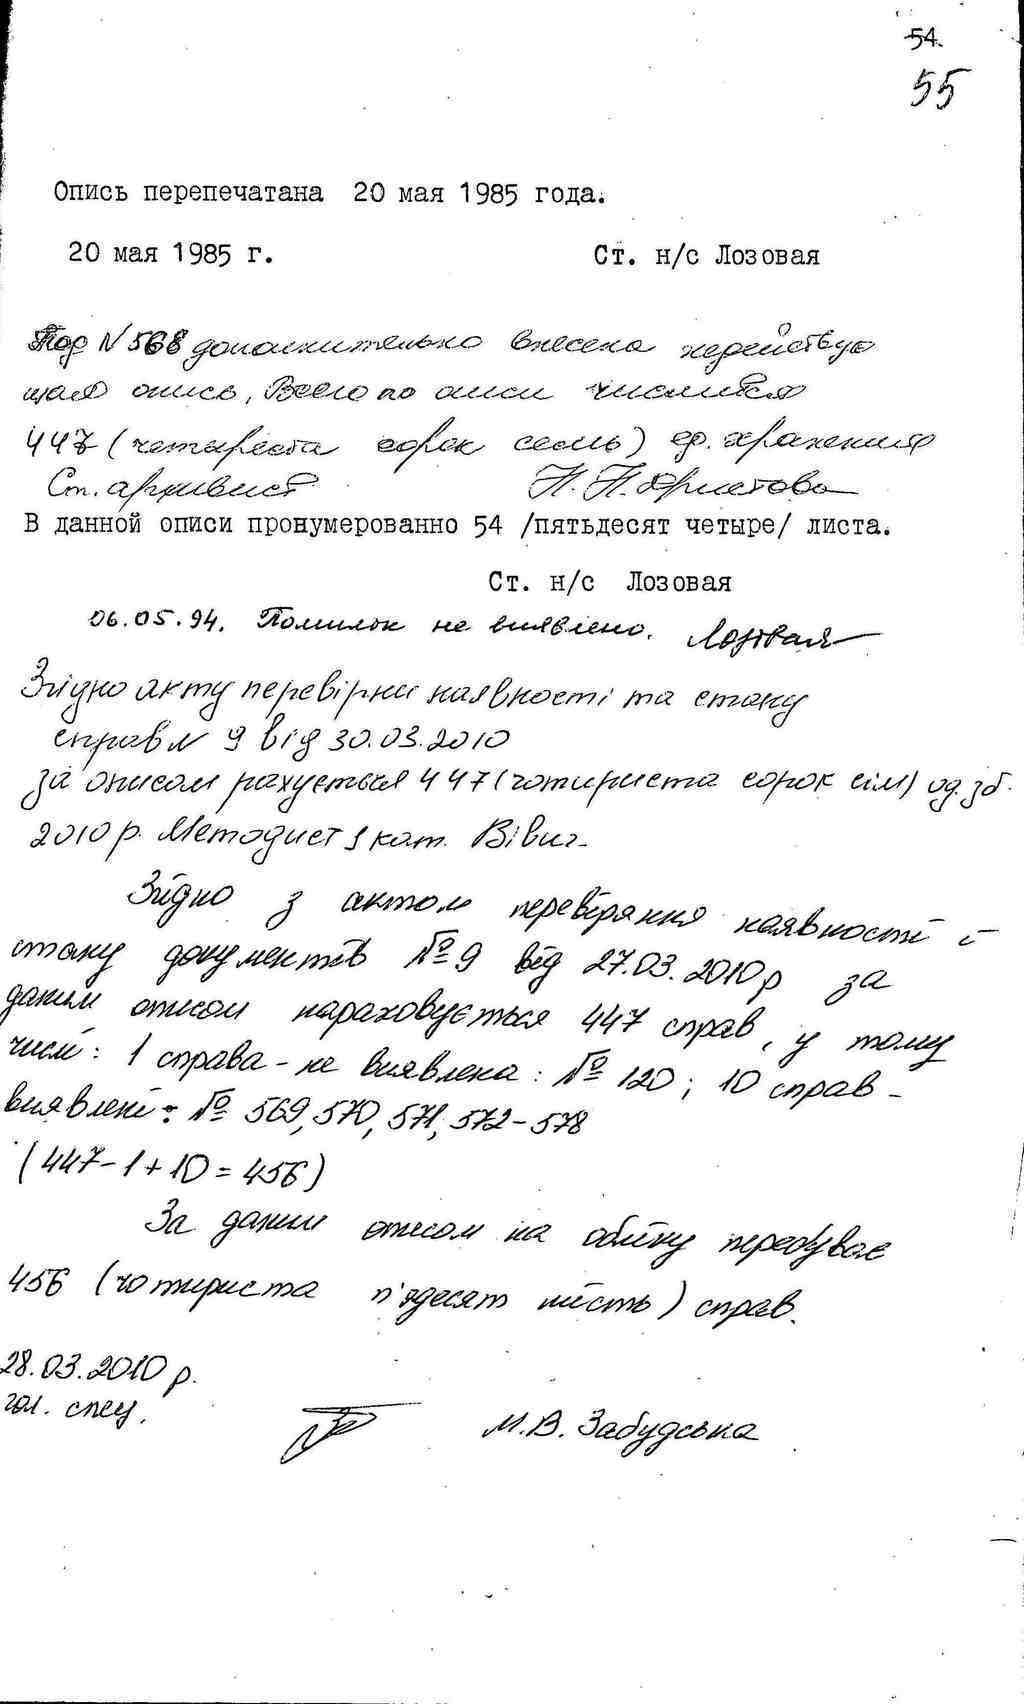 54.
55
Опись перепечатана 20 мая 1985 года.
20 мая 1985 г. Ст. н/с Лозовая
Под N 568 дополнительно внесена недействую
щая опись, Всего по описи числится
447 (четыреста сорок семь) ед. хранения
Ст. архивист Н. Н. Христова
В данной описи пронумерованно 54 /пятьдесят четыре/ листа.
Ст. н/с Лозовая
06.05.94. Помилок не виявлено. Лозовая
Згідно акту перевірки наявності та стану
справ N 9 від 30.03.2010
за описом рахується 447 (чотириста сорок сім) од. зб.
2010 р. Методист 1 кат.
Згідно з актом перевіряння наявності й
стану документів № 9 від 27.03.2010 р за
даним описом нараховується 447 справ, у тому
числі: 1 справа - не виявлена: № 120; 10 справ -
виявлені: № 569, 570, 571, 572-578
(447-1+10=456)
За даним описом на обліку перебуває
456 (чотириста п'ядесят шість) справ.
28.03.2010 р.
гол. спец.
М.В. Забудська